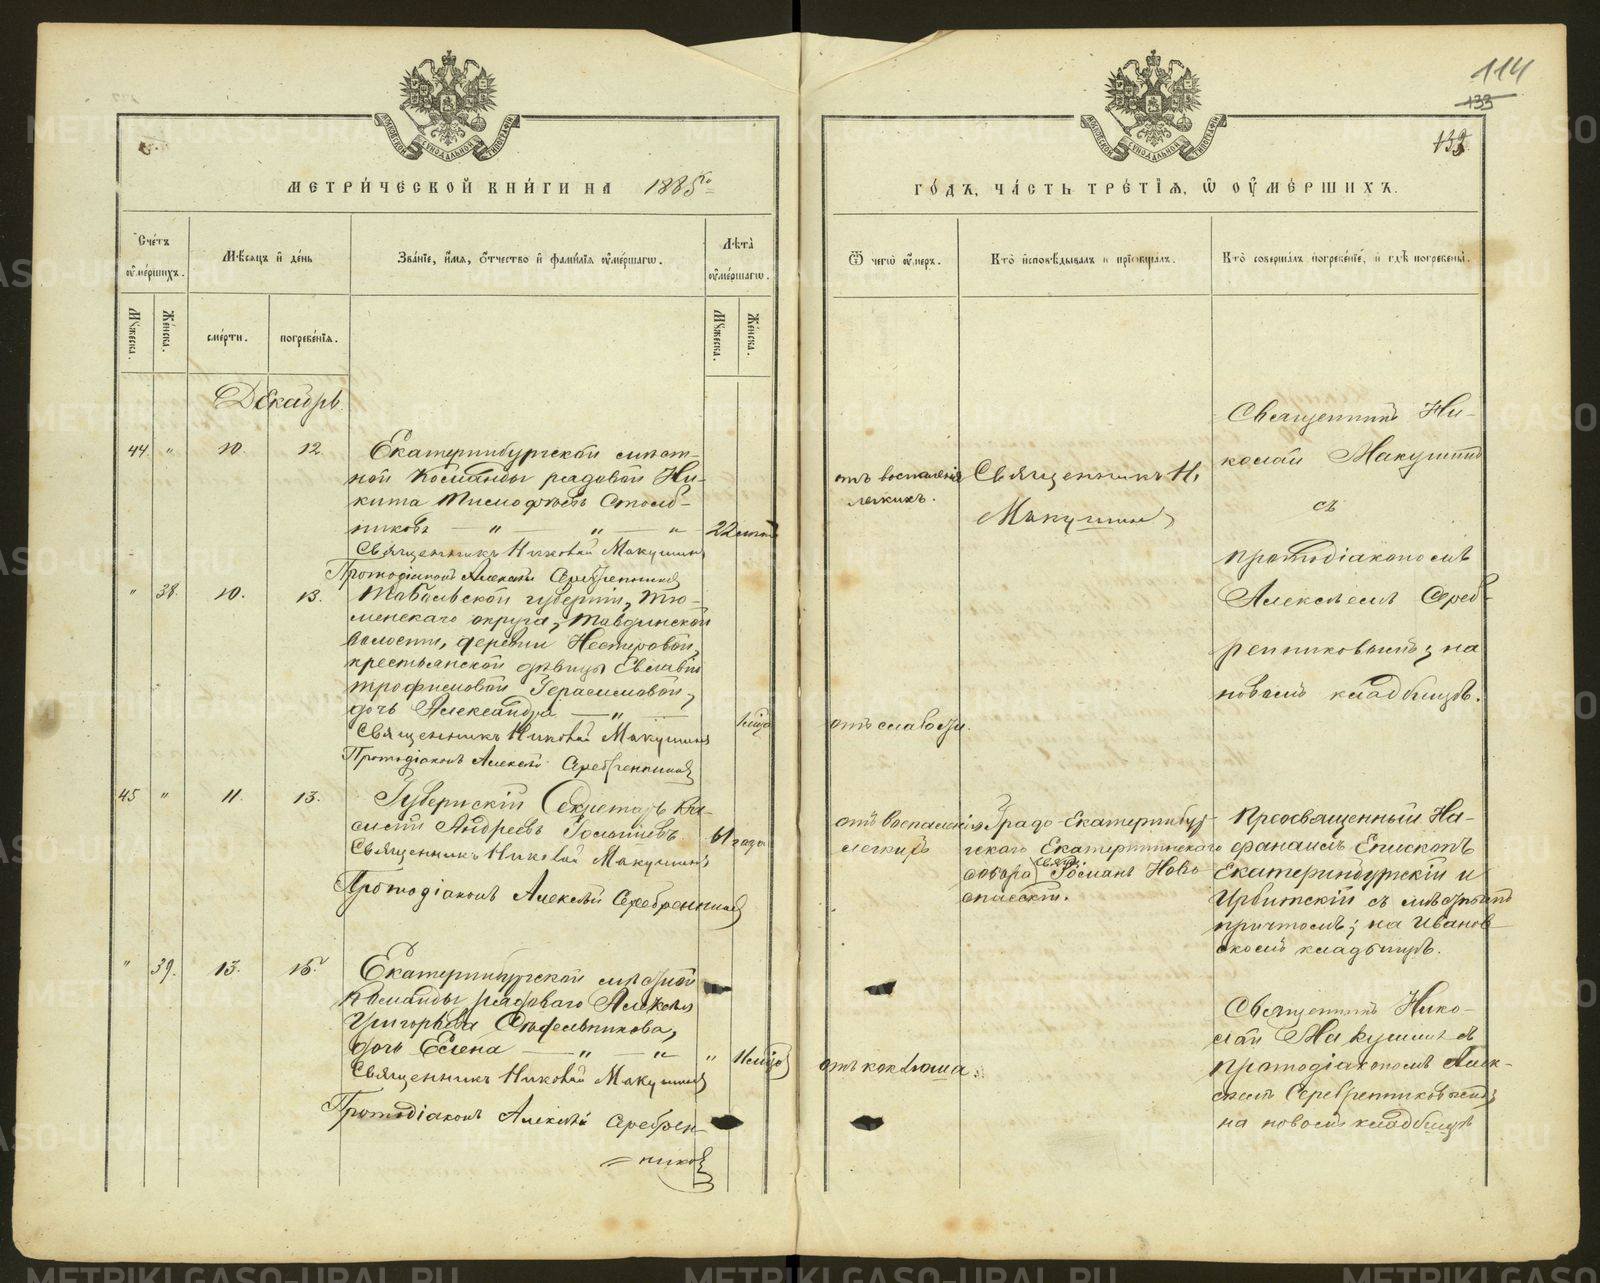 114
133
133
МЕТРИ́ЧЕСКОЙ КНИ́ГИ НА 1885го
ГО́ДЪ, ЧА́СТЬ ТРЕ́ТІЯ, Ѿ ОУМЕ́РШИХЪ.
Сче́тъ оуме́ршихъ.
Мѣ́сяцъ и де́нь
Зва́ніе, и́мя, о́тчество и фами́лія оуме́ршагѡ.
Лѣ́та оуме́ршагѡ.
Му́жеска.
Же́нска.
сме́рти.
погребе́нія.
Му́жеска.
Же́нска.
Ѿ чегѡ̀ оу́меръ.
Кто̀ исповѣ́дывалъ и пріобща́лъ.
Кто̀ соверша́лъ погребе́ніе, и гдѣ̀ погребены̀.
Декабрь.
44 " 10 12
Екатеринбургской мѣст-
ной команды рядовой Ни-
кита Тимофѣевъ Столб-
никовъ — " — " — "
22 лѣтъ
Священникъ Николай Макушинъ
Протодіаконъ Алексѣй Серебренниковъ
отъ воспаленія
легкихъ.
Священникъ Н.
Макушинъ
Священникъ Ни-
колай Макушинъ
съ
протодіакономъ
Алексѣемъ Сереб-
ренниковымъ; на
новомъ кладбищѣ.
" 38. 10. 13.
Тобольской губерніи, Тю-
менскаго округа, Тавдинской
волости, деревни Нестеровой,
крестьянской дѣвицы Евлавіи
Трофимовой Герасимовой,
дочь Александра — " —
1 мѣс.
Священникъ Николай Макушинъ
Протодіаконъ Алексѣй Серебренниковъ
отъ слабости.
45 " 11. 13.
Губернскій Секретарь Ва-
силій Андреевъ Голышевъ
61 года
Священникъ Николай Макушинъ
Протодіаконъ Алексѣй Серебренниковъ
отъ воспаленія
легкихъ
Градо-Екатеринбур-
гскаго Екатерининскаго
собора свящ. Романъ Ново
спасскій.
Преосвященный На-
фанаилъ Епископъ
Екатеринбургскій и
Ирбитскій съ мѣстнымъ
причтомъ; на Иванов-
скомъ кладбищѣ.
" 39. 13. 15.
Екатеринбургской мѣстной
команды рядоваго Алексѣя
Григорьева Сѣдельникова,
дочь Елена — " — "
" 11 мѣс.
Священникъ Николай Макушинъ
Протодіаконъ Алексѣй Серебрен-
никовъ
отъ коклюша.
Священникъ Нико-
лай Макушинъ съ
протодіакономъ Алек-
сѣемъ Серебренниковымъ;
на новомъ кладбищѣ
METRIKI.GASO-URAL.RU